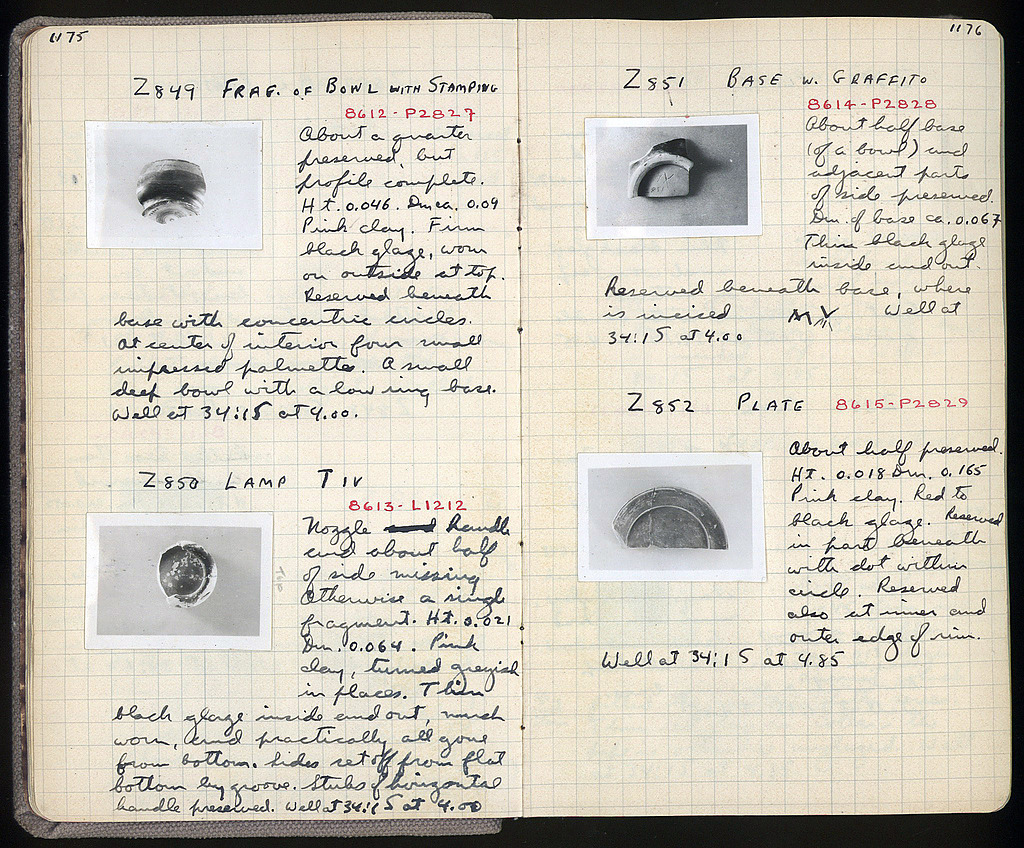 1175
Z849 FRAG. OF BOWL WITH STAMPING
8612-P2827
About a quarter
preserved, but
profile complete.
Ht. 0.046. Dm ca. 0.09
Pink clay. Firm
black glaze, worn
on outside at top.
Reserved beneath
base with concentric circles.
At center of interior four small
impressed palmettes. A small
deep bowl with a low ring base.
Well at 34:15 at 4.00.
Z850 LAMP T IV
8613-L1212
Nozzle handle
and about half
of side missing
Otherwise a single
fragment. Ht. 0.021
Dm. 0.064. Pink
clay, turned greyish
in places. Thin
black glaze inside and out, much
worn, and practically all gone
from bottom. Sides set off from flat
bottom by groove. Stubs of horizontal
handle preserved. Well at 34:15 at 4.00
1176
Z851 BASE W. GRAFFITO
8614-P2828
About half base
(of a bowl) and
adjacent parts
of side preserved.
Dm. of base ca. 0.067
Thin black glaze
inside and out.
Reserved beneath base, where
is incised Well at
34:15 at 4.00
Z852 PLATE 8615-P2829
About half preserved.
Ht. 0.018 Dm. 0.165
Pink clay. Red to
black glaze. Reserved
in part beneath
with dot within
circle. Reserved
also at inner and
outer edge of rim.
Well at 34:15 at 4.85